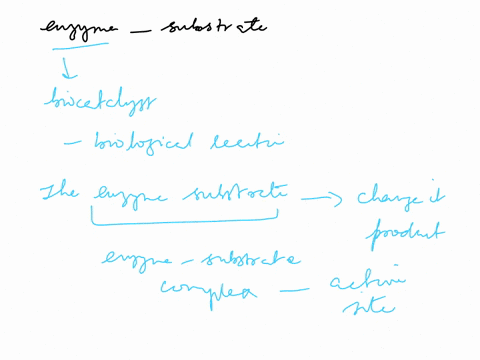 enzyme — substrate
biocatalyst
— biological reactin
The enzyme substrate → change it
product
enzyme - substrate
complex — active
site